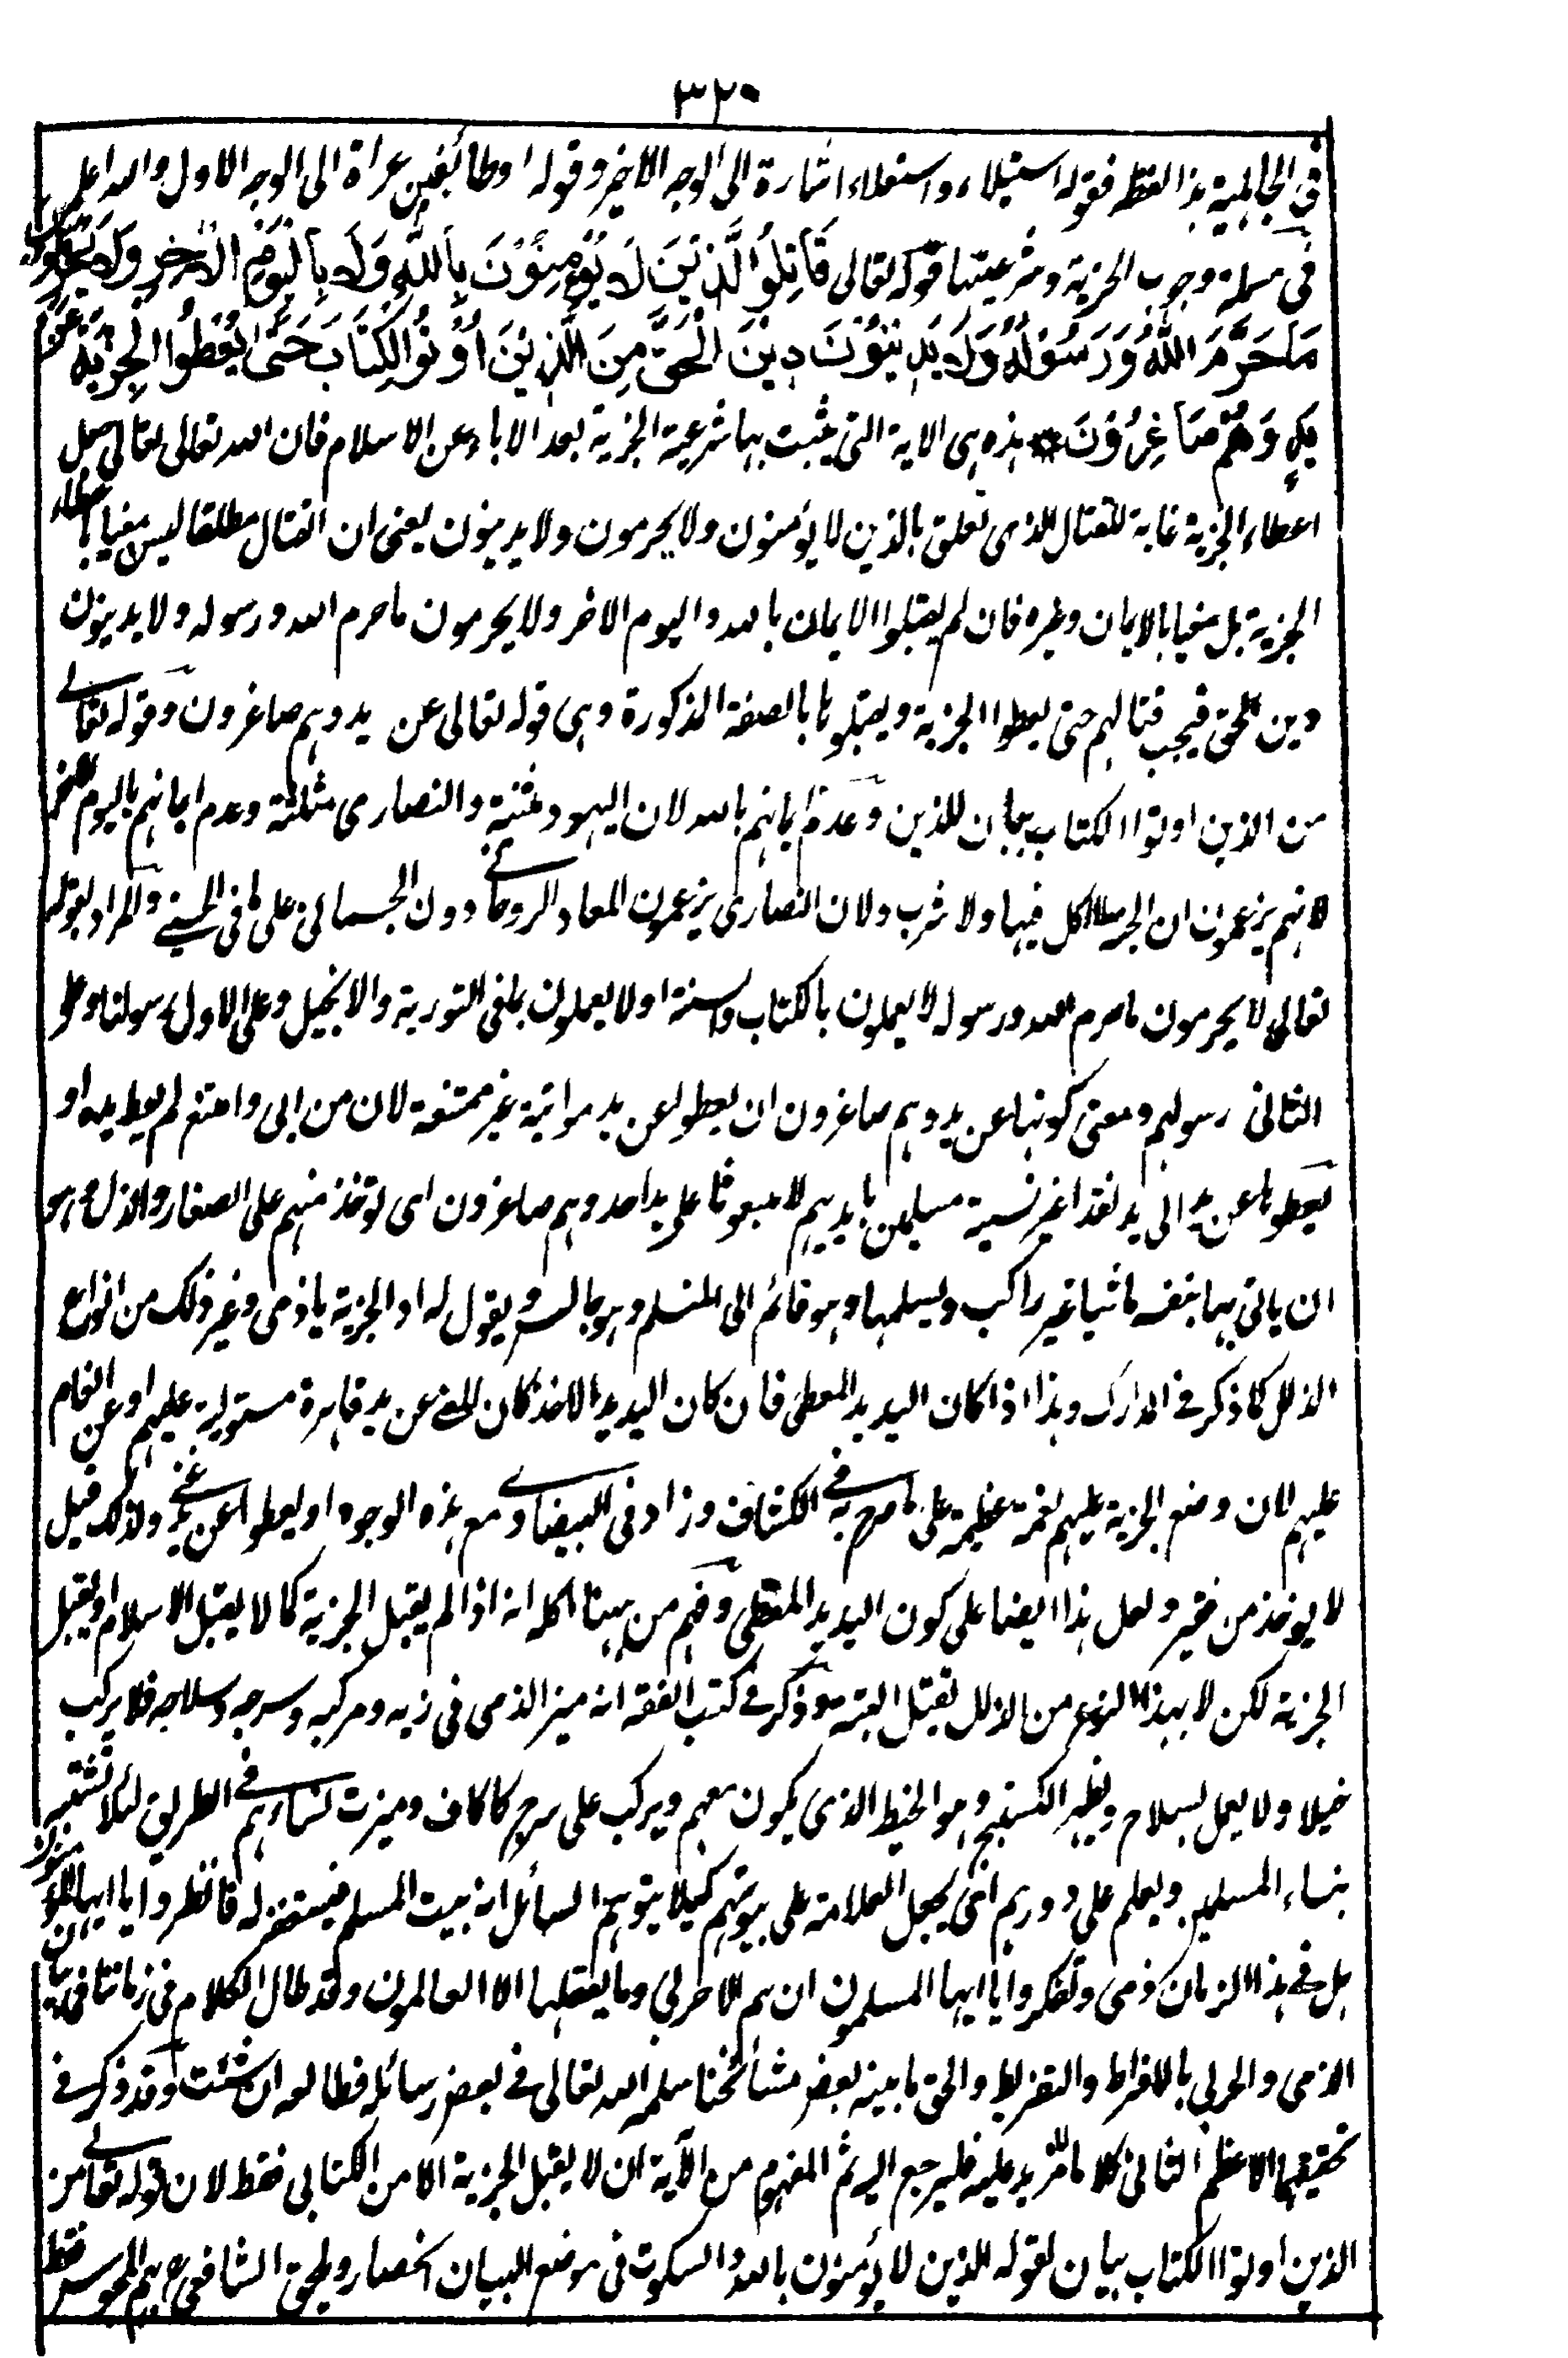 ٣٢٠
في الجاهلية بذا اللفظ فقوله استيلاء واستعلاء اشارة الى الوجه الاخير وقوله او طائفين عراة الى الوجه الاول والله اعلم
في مسئلة وجوب الجزية وشرعيتها قوله تعالى قَاتِلُوا الَّذِيْنَ لَا يُؤْمِنُوْنَ بِاللّٰهِ وَلَا بِالْيَوْمِ الْاٰخِرِ وَلَا يُحَرِّمُوْنَ
مَا حَرَّمَ اللّٰهُ وَرَسُوْلُهٗ وَلَا يَدِيْنُوْنَ دِيْنَ الْحَقِّ مِنَ الَّذِيْنَ اُوْتُوا الْكِتَابَ حَتّٰى يُعْطُوا الْجِزْيَةَ عَنْ
يَدٍ وَّهُمْ صَاغِرُوْنَ هذه هى الاية التى يثبت بها شرعية الجزية بعد الاباء عن الاسلام فان الله تعالى جعل
اعطاء الجزية غاية للقتال الذى تعلق بالذين لا يؤمنون ولا يحرمون ولا يدينون يعنى ان القتال مطلقا ليس مغيا باعطاء
الجزية بل مغيا بالايمان وغيره فان لم يقبلوا الايمان بالله واليوم الاخر ولا يحرمون ما حرم الله ورسوله ولا يدينون
دين الحق فيجب قتالهم حتى يعطوا الجزية ويقبلوها بالصفة المذكورة وهى قوله تعالى عن يد وهم صاغرون وقوله تعالى
من الذين اوتوا الكتاب بيان للذين وعدم ايمانهم بالله لان اليهود مثنية والنصارى مثلثة وعدم ايمانهم باليوم الاخر
لانهم يزعمون ان الجنة لا اكل فيها ولا شرب ولان النصارى يزعمون المعاد الروحانى دون الجسمانى على ما فى الحسينى والمراد بقوله
تعالى لا يحرمون ما حرم الله ورسوله لا يعملون بالكتاب والسنة او لا يعملون بما فى التورية والانجيل وعلى الاول رسولنا وعلى
الثانى رسولهم ومعنى كونها عن يد وهم صاغرون ان يعطوا عن يد مواتية غير ممتنعة لان من ابى وامتنع لم يعط يده او
يعطوها عن يد الى يد نقدا غير نسية مسلمين بايديهم لا مبعوثا على يد احد وهم صاغرون اى تؤخذ منهم على الصغار والذل وهو
ان ياتى بها بنفسه ماشيا غير راكب ويسلمها وهو قائم الى المتسلم وهو جالس ويقول له اد الجزية يا ذمى وغير ذلك من انواع
الذلل كما ذكر فى المدارك وهذا اذا كان اليد يد المعطى فان كان اليد يد الاخذ كان المعنى عن يد قاهرة مستولية عليهم او عن انعام
عليهم لان وضع الجزية عليهم نعمة عظيمة على ما صرح به فى الكشاف وزاد فى البيضاوى مع هذه الوجوه او يعطوا عن غنى ولذلك قيل
لا يوخذ من فقير ولعل هذا ايضا على كون اليد يد المعطى وفهم من ههنا كله انه اذا لم يقبل الجزية كما لا يقبل الاسلام او يقبل
الجزية لكن لا بهذا النوع من الاذلال يقتل البتة وذكر فى كتب الفقه انه ميز الذمى فى زيه ومركبه وسرجه وسلاحه فلا يركب
خيلا ولا يعمل بسلاح ويظهر الكستيج وهو الخيط الذى يكون معهم ويركب على سرج كاكاف وميزت نساءهم فى الطريق لئلا تشتبه
بنساء المسلمين ويعلم على دورهم اى يجعل العلامة على بيوتهم كيلا يتوهم السائل انه بيت المسلم فيستغفر له فانظروا يا ايها المؤمنون
هل فى هذا الزمان ذمى وتفكروا يا ايها المسلمون ان هم الا حربى وما يعقلها الا العالمون وقد طال الكلام فى زماننا فى بيان
الذمى والحربى بالافراط والتفريط والحق ما بينه بعض مشائخنا سلمه الله تعالى فى بعض رسائله فطالعه ان شئت وقد ذكر فى
تحقيقها الاعظم الثانى كلاما لا مزيد عليه فليرجع اليه ثم المفهوم من الآية ان لا يقبل الجزية الا من الكتابى فقط لان قوله تعالى من
الذين اوتوا الكتاب بيان لقوله الذين لا يؤمنون بالله والسكوت فى موضع البيان انحصار ويلحق الشافعى رح بهم المجوس فقط